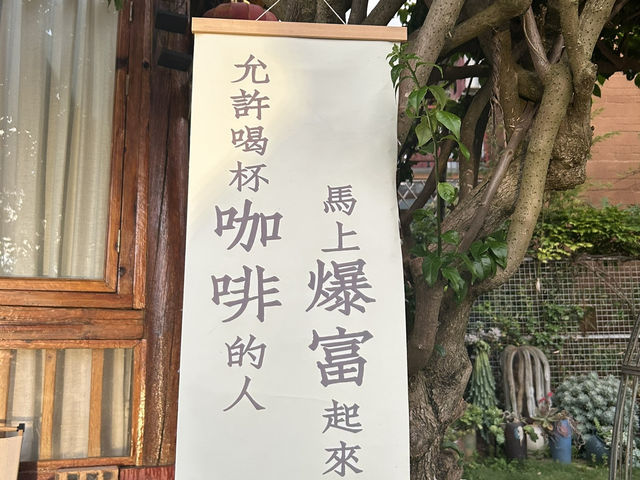 允許喝杯咖啡的人
馬上爆富起來